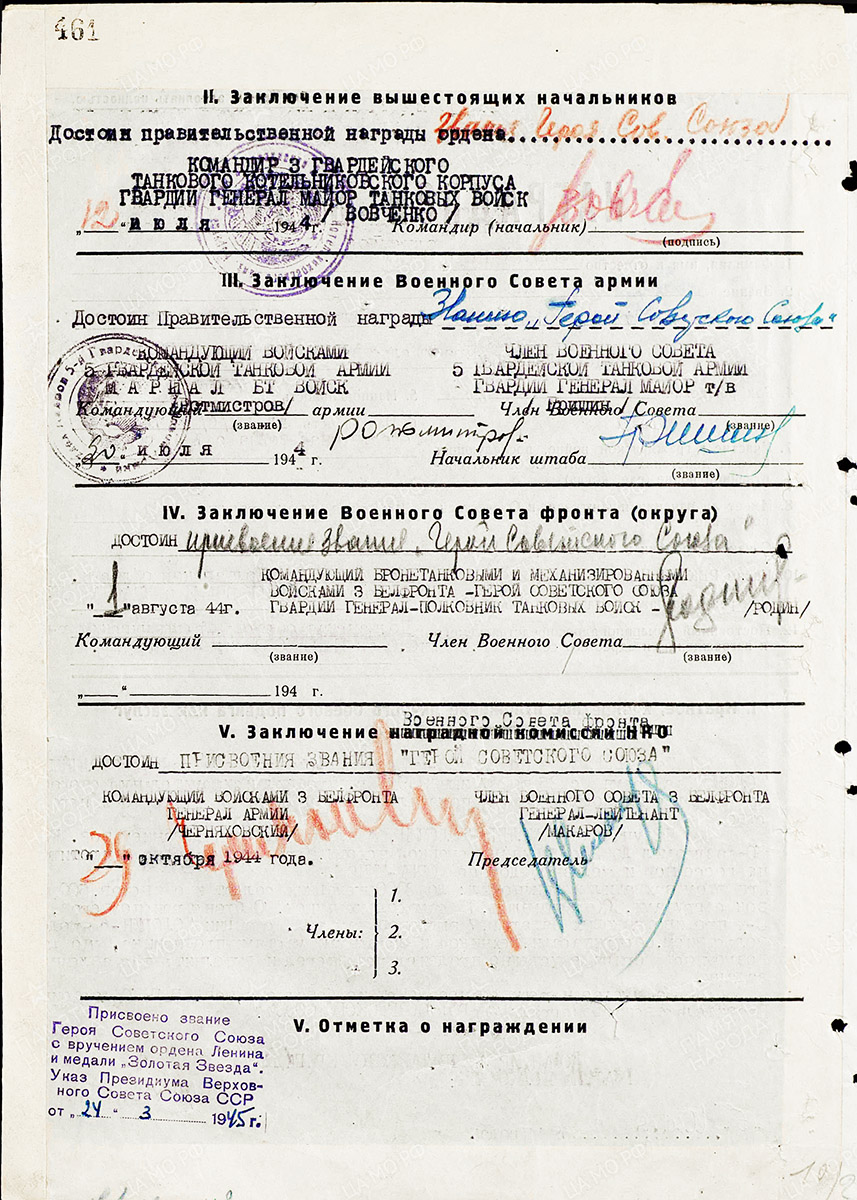 461
II. Заключение вышестоящих начальников
Достоин правительственной награды ордена Героя Сов. Союза
КОМАНДИР 3 ГВАРДЕЙСКОГО
ТАНКОВОГО КОТЕЛЬНИКОВСКОГО КОРПУСА
ГВАРДИИ ГЕНЕРАЛ МАЙОР ТАНКОВЫХ ВОЙСК
/ВОВЧЕНКО/
„12“ июля 1944 г. Командир (начальник)
(подпись)
III. Заключение Военного Совета армии
Достоин Правительственной награды Званию „Герой Советского Союза“
КОМАНДУЮЩИЙ ВОЙСКАМИ ЧЛЕН ВОЕННОГО СОВЕТА
5 ГВАРДЕЙСКОЙ ТАНКОВОЙ АРМИИ 5 ГВАРДЕЙСКОЙ ТАНКОВОЙ АРМИИ
МАРШАЛ БТ ВОЙСК ГВАРДИИ ГЕНЕРАЛ МАЙОР т/в
Командующий /Ротмистров/ армии Член Военного Совета /Гришин/
(звание) Ротмистров (звание)
„30“ июля 1944 г. Начальник штаба
(звание)
IV. Заключение Военного Совета фронта (округа)
ДОСТОИН присвоения звания „Герой Советского Союза“
КОМАНДУЮЩИЙ БРОНЕТАНКОВЫМИ И МЕХАНИЗИРОВАННЫМИ
ВОЙСКАМИ 3 БЕЛФРОНТА -ГЕРОЙ СОВЕТСКОГО СОЮЗА
"1"августа 44г. ГВАРДИИ ГЕНЕРАЛ-ПОЛКОВНИК ТАНКОВЫХ ВОЙСК - Родин /РОДИН/
Командующий Член Военного Совета
(звание) (звание)
„ “ 194 г.
Военного Совета фронта
V. Заключение наградной комиссии НКО
ДОСТОИН ПРИСВОЕНИЯ ЗВАНИЯ "ГЕРОЙ СОВЕТСКОГО СОЮЗА"
КОМАНДУЮЩИЙ ВОЙСКАМИ 3 БЕЛФРОНТА ЧЛЕН ВОЕННОГО СОВЕТА 3 БЕЛФРОНТА
ГЕНЕРАЛ АРМИИ ГЕНЕРАЛ-ЛЕЙТЕНАНТ
/ЧЕРНЯХОВСКИЙ/ /МАКАРОВ/
" октября 1944 года. Председатель
1.
Члены: 2.
3.
V. Отметка о награждении
Присвоено звание
Героя Советского Союза
с вручением ордена Ленина
и медали „Золотая Звезда“.
Указ Президиума Верхов-
ного Совета Союза ССР
от „24“ 3 1945г.